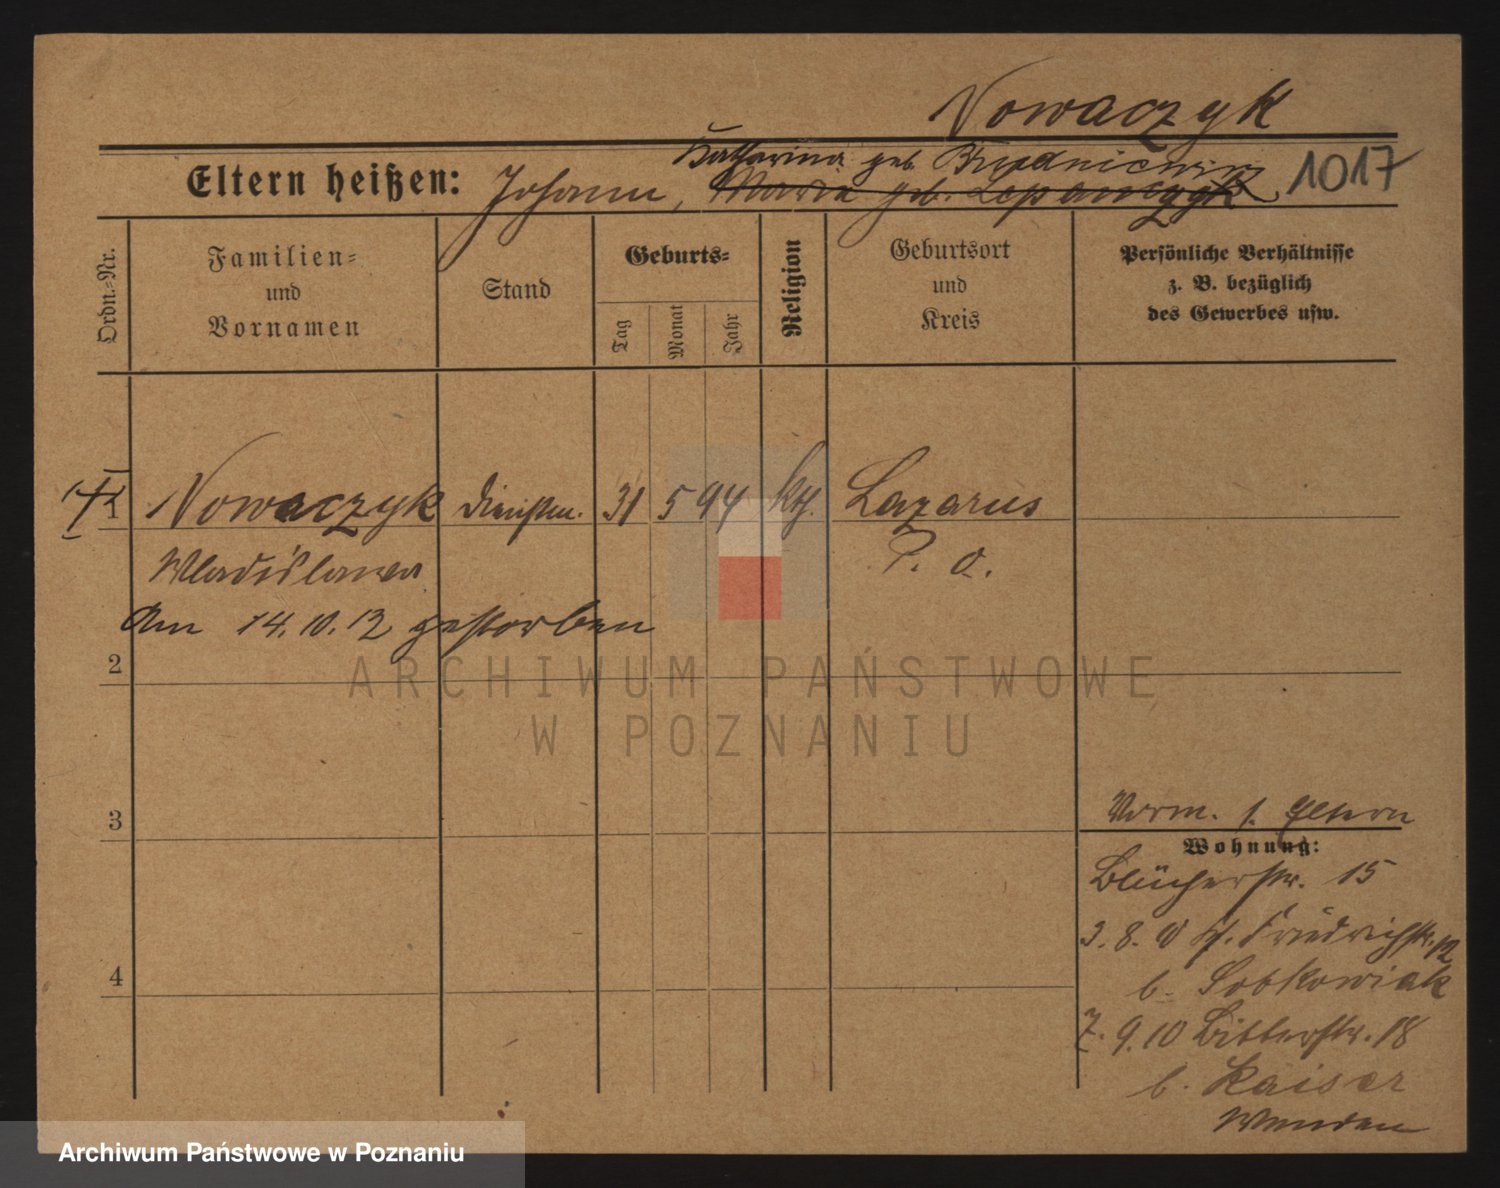 Nowaczyk
Katharina geb.
Eltern heißen: Johann, Maria geb. Szczepanczyk 1017
Ordn.-Nr.
Familien- und Vornamen
Stand
Geburts-
Tag
Monat
Jahr
Religion
Geburtsort und Kreis
Persönliche Verhältnisse z. B. bezüglich des Gewerbes usw.
1 Nowaczyk Dienstm. 31 5 94 kth. Lazarus
Wladislawa P. O.
Am 14.10.12 gestorben
2
ARCHIWUM PAŃSTWOWE
W POZNANIU
3
Vorm. s. Eltern
Wohnung:
Blücherstr. 15
3. 8. 10 Friedrichstr. 12
4
b. Sobkowiak
7. 9. 10 Bitterstr. 18
b. Kaiser
Wenden
Archiwum Państwowe w Poznaniu